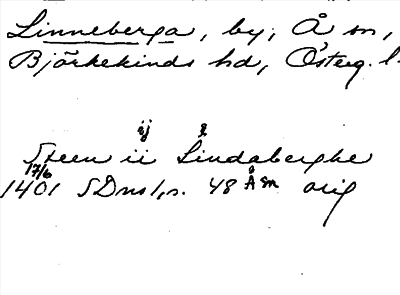 Linneberga, by, Å sn,
Björkekinds hd, Österg. l.
ij g
Steen ii Lindaberghe
17/6
1401 SDns 1, s. 48 Å sn orig